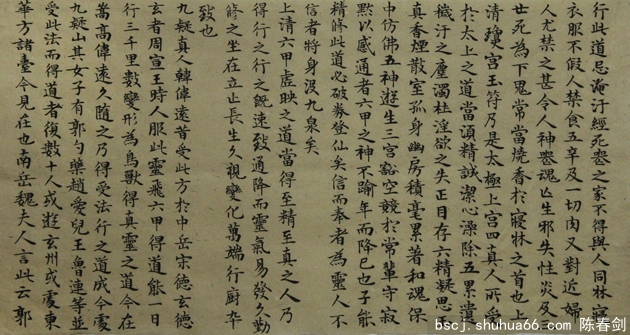 行此道忌淹汙經死喪之家不得與人同牀寢
衣服不假人禁食五辛及一切肉又對近婦
人尤禁之甚令人神喪魂亡生邪失性災及三
世死為下鬼常當燒香於寢牀之首也上
清瓊宮玉符乃是太極上宮四真人所受
於太上之道當須精誠潔心澡除五累遺
穢汙之塵濁杜淫欲之失正目存六精凝思玉
真香煙散室孤身幽房積毫累著和魂保
中仿佛五神遊生三宮豁空競於常輩守寂
默以感通者六甲之神不踰年而降已也子能
精修此道必破券登仙矣信而奉者為靈人不
信者將身沒九泉矣
上清六甲虛映之道當得至精至真之人乃
得行之行之既速致通降而靈氣易發久勤
修之坐在立亡長生久視變化萬端行廚卒
致也
九疑真人韓偉遠昔受此方於中岳宋德玄德
玄者周宣王時人服此靈飛六甲得道能一日
行三千里數變形為鳥獸得真靈之道今在
嵩高偉遠久隨之乃得受法行之道成今處
九疑山其女子有郭勺藥趙愛兒王魯連等並
受此法而得道者復數十人或遊玄州或處東
華方諸臺今見在也南岳魏夫人言此云郭
bscj.shuhua66.com 陈春剑